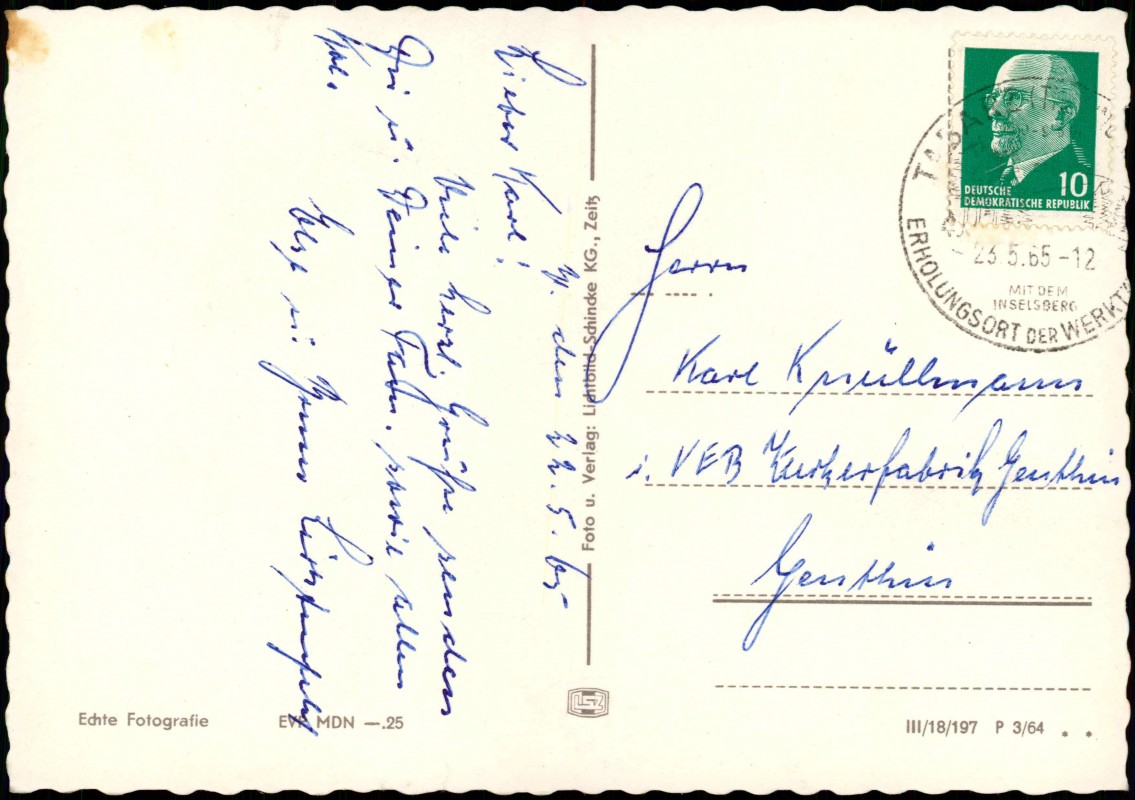 T. den 22. 5. 65
Lieber Karl!
Viele herzl. Grüße senden
Dir u. Deiner Fam. sowie allen
Kol.
Else u. Werner
DEUTSCHE
DEMOKRATISCHE REPUBLIK
10
TABARZ
23.5.65-12
MIT DEM
INSELSBERG
ERHOLUNGSORT DER WERKT
Herrn
Karl Knüllmann
i. VEB Zuckerfabrik Genthin
Genthin
Foto u. Verlag: Lichtbild-Schincke KG., Zeitz
Echte Fotografie
EVP MDN —.25
III/18/197 P 3/64